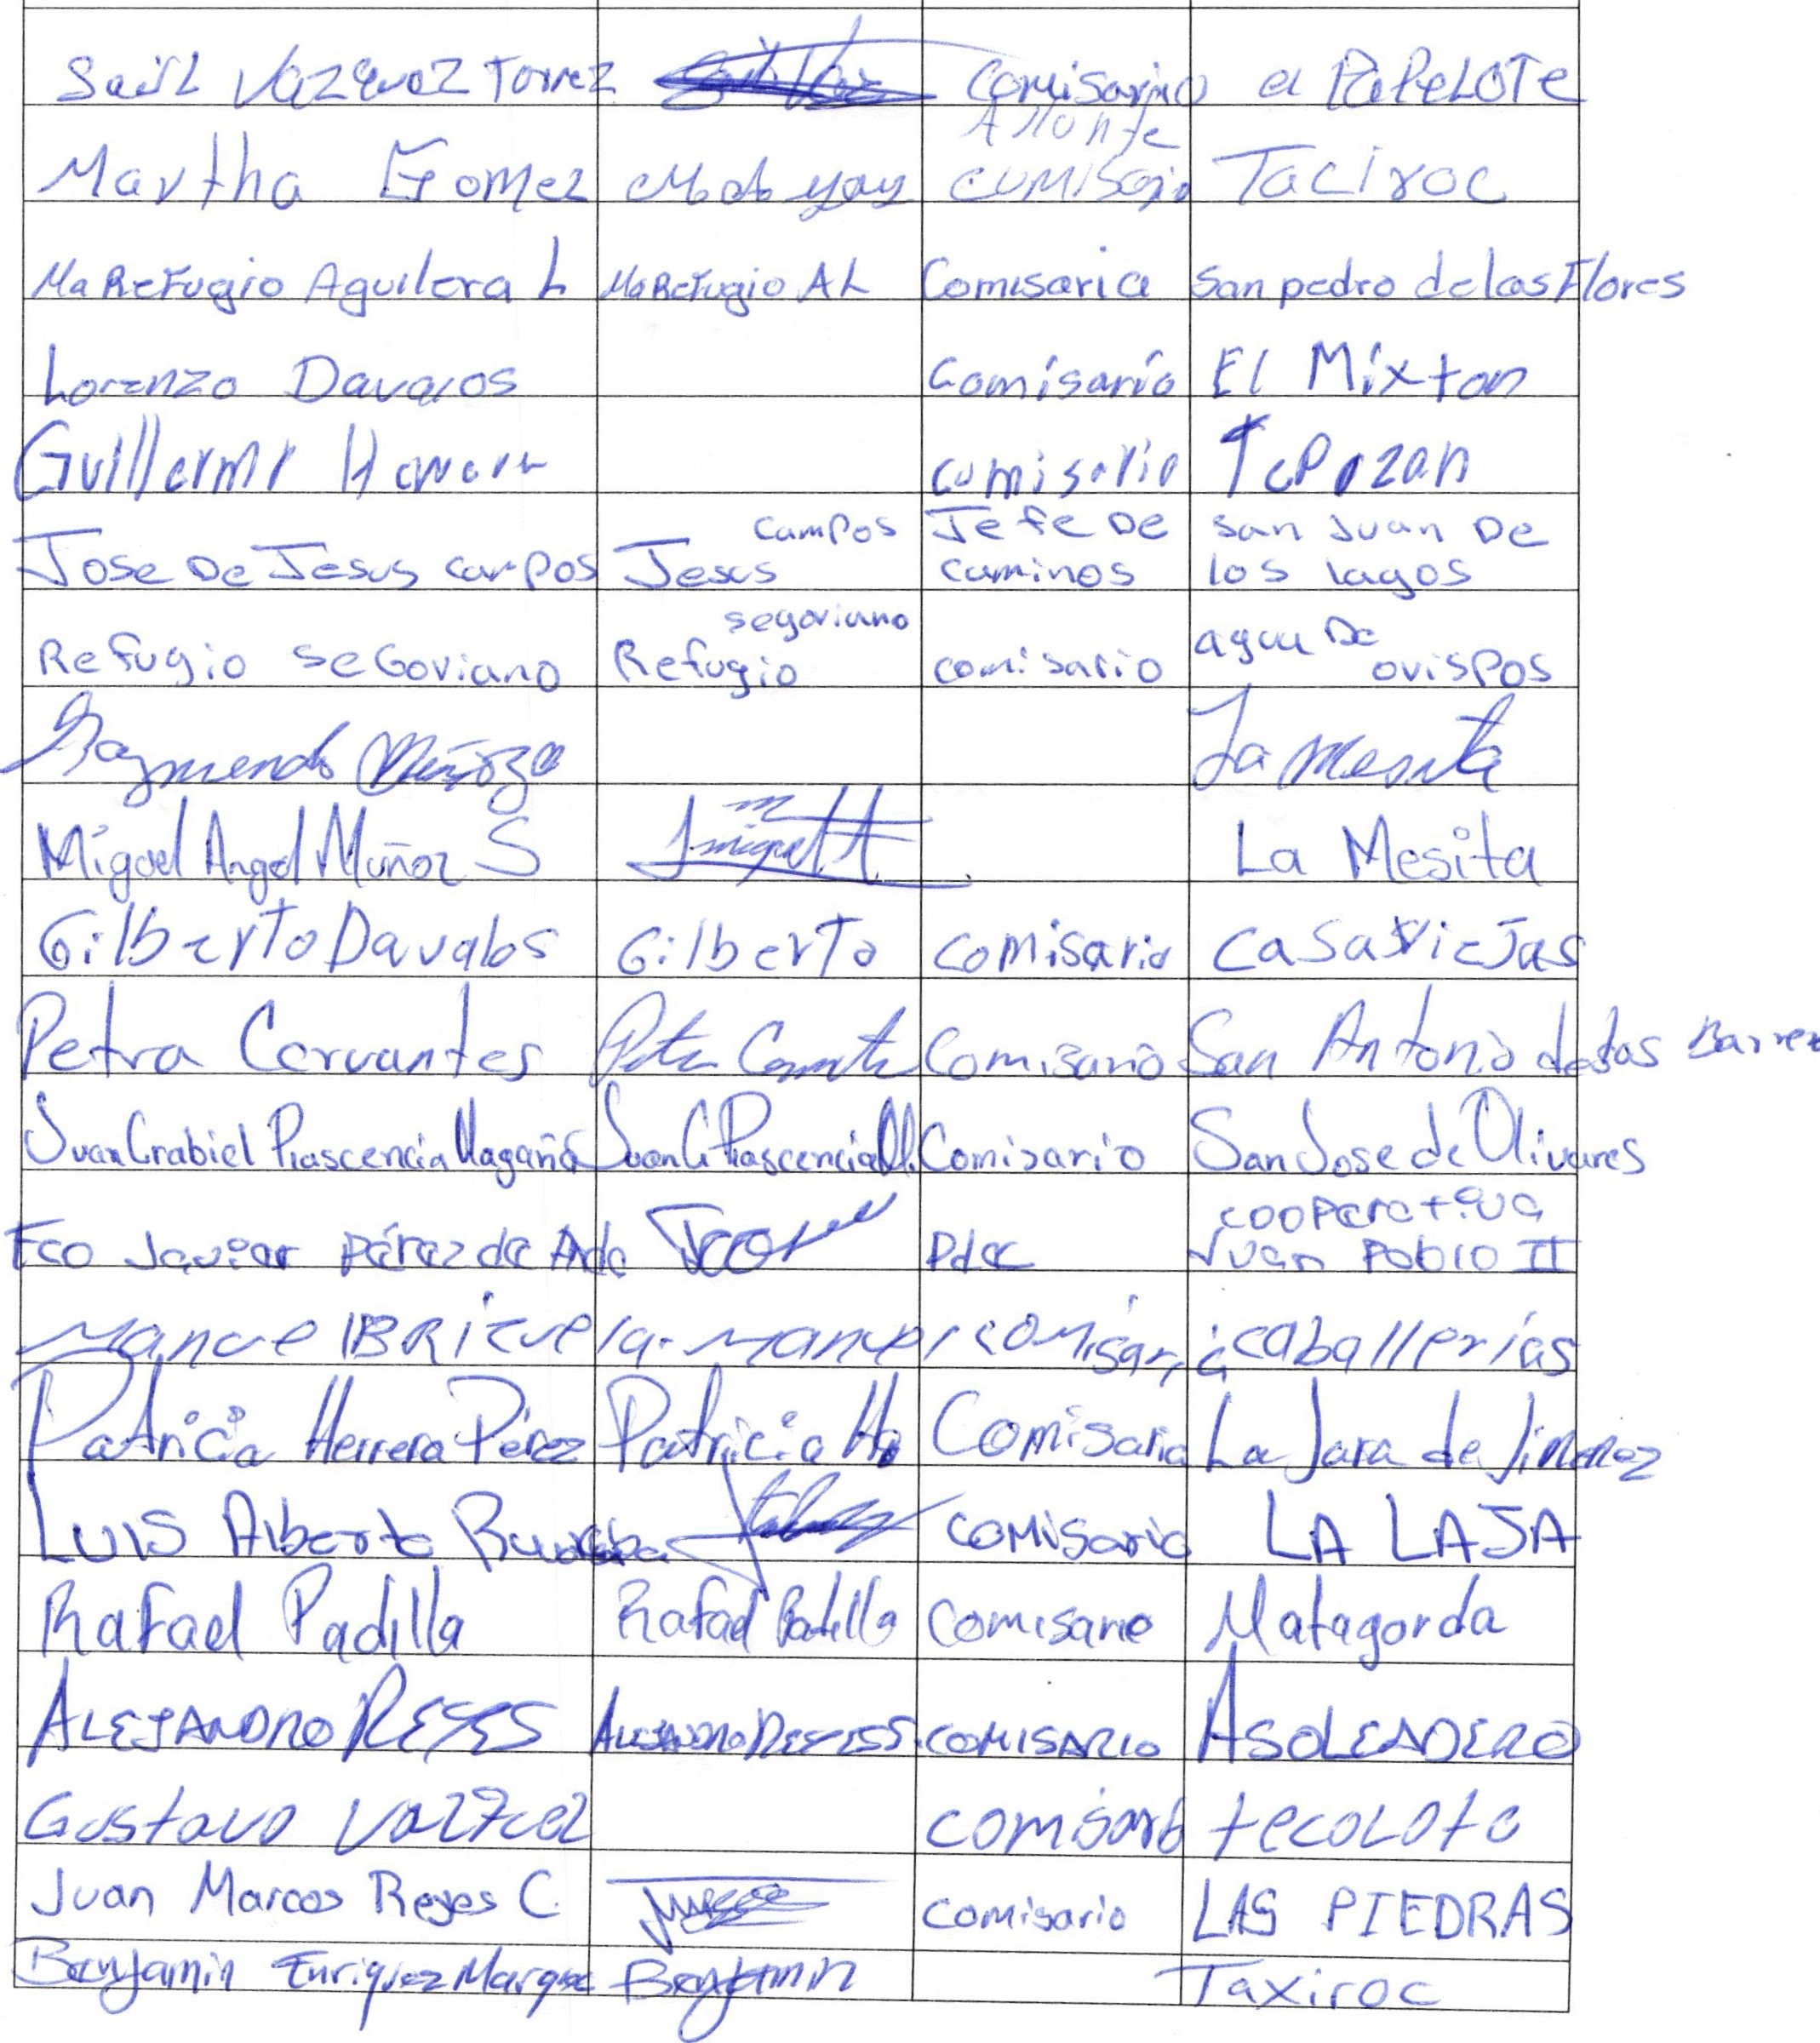 Saúl Vazquez Torrez comisario el PAPeLOTe
Martha Gomez comisario Taciroc
Ma Refugio Aguilera L Ma Refugio A L Comisaria San pedro de las Flores
Lorenzo Davalos Comisario El Mixton
Guillermo comisario Tepozan
Jose De Jesus campos Jesus campos Jefe De caminos san Juan De los lagos
Refugio seGoviano Refugio segoviano comisario agua De ovispos
Raymundo Muñoz La Mesita
Miguel Angel Muñoz S La Mesita
Gilberto Davalos Gilberto comisario casas Viejas
Petra Cervantes Petra Comisario San Antonio de las Barren
Juan Grabiel Plascencia Magaña Juan G Plascencia M. Comisario San Jose de Olivares
Fco Javier Pérez de Anda Pdte cooperativa Juan Pablo II
Manuel BRizuela. Manuel comisario caballerías
Patricia Herrera Pérez Patricia He Comisaria La Jara de Jimenez
LUIS Alberto comisario LA LAJA
Rafael Padilla Rafael Padilla Comisario Matagorda
ALEJANDRO REYES ALEJANDRO REYES S. COMISARIO ASOLEADERO
Gustavo Vazquez comisario tecolote
Juan Marcos Reyes C. comisario LAS PIEDRAS
Benjamin Enriquez Marquez Benjamin Taxiroc